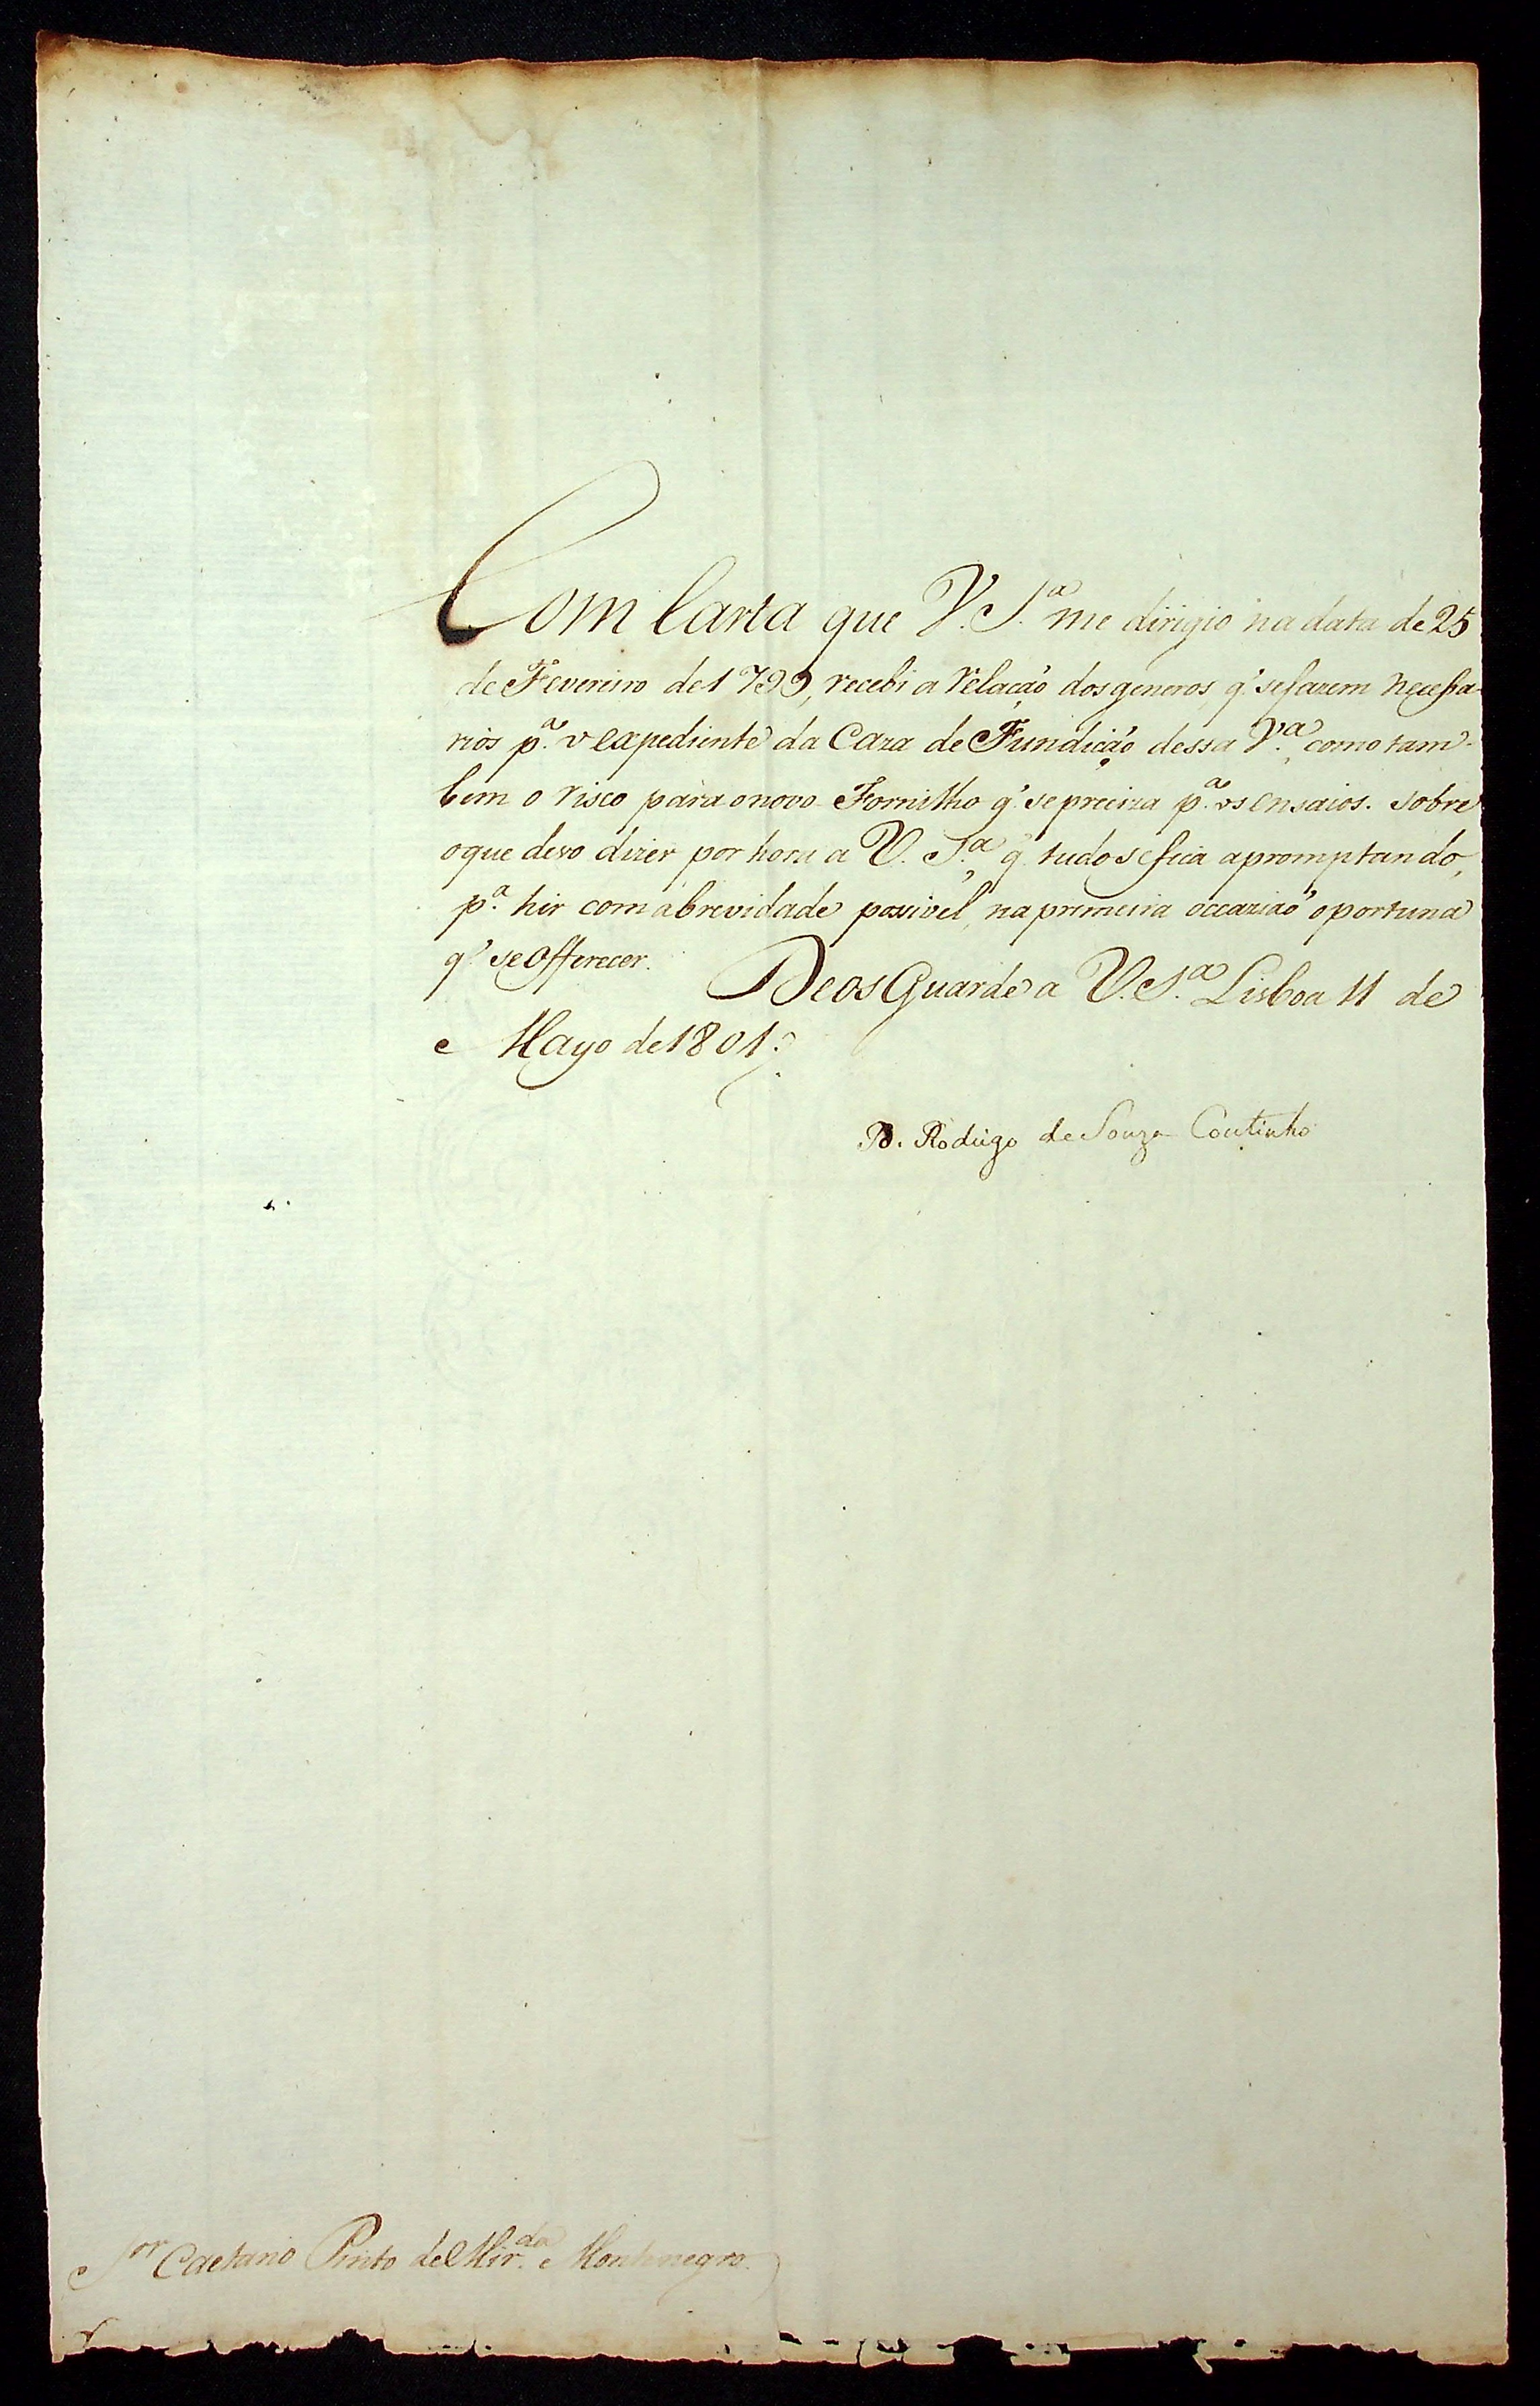 Com Carta que V. S.ª me dirigio na data de 25
de Fevereiro de 1799, recebi a relação dos generos, q' se fazem necessa-
rios p.ª o expediente da Caza de Fundição dessa V.ª como tam-
bem o risco para o novo Fornilho q' se preciza p.ª os ensaios. sobre
o que devo dizer por hora a V. S.ª, q' tudo se fica apromptando,
p.ª hir com a brevidade possivel, na primeira occazião oportuna
q' se offerecer. Deos Guarde a V. S.ª Lisboa 11 de
Mayo de 1801.
D. Rodrigo de Souza Coutinho
S.or Caetano Pinto de Mir.da Montenegro.